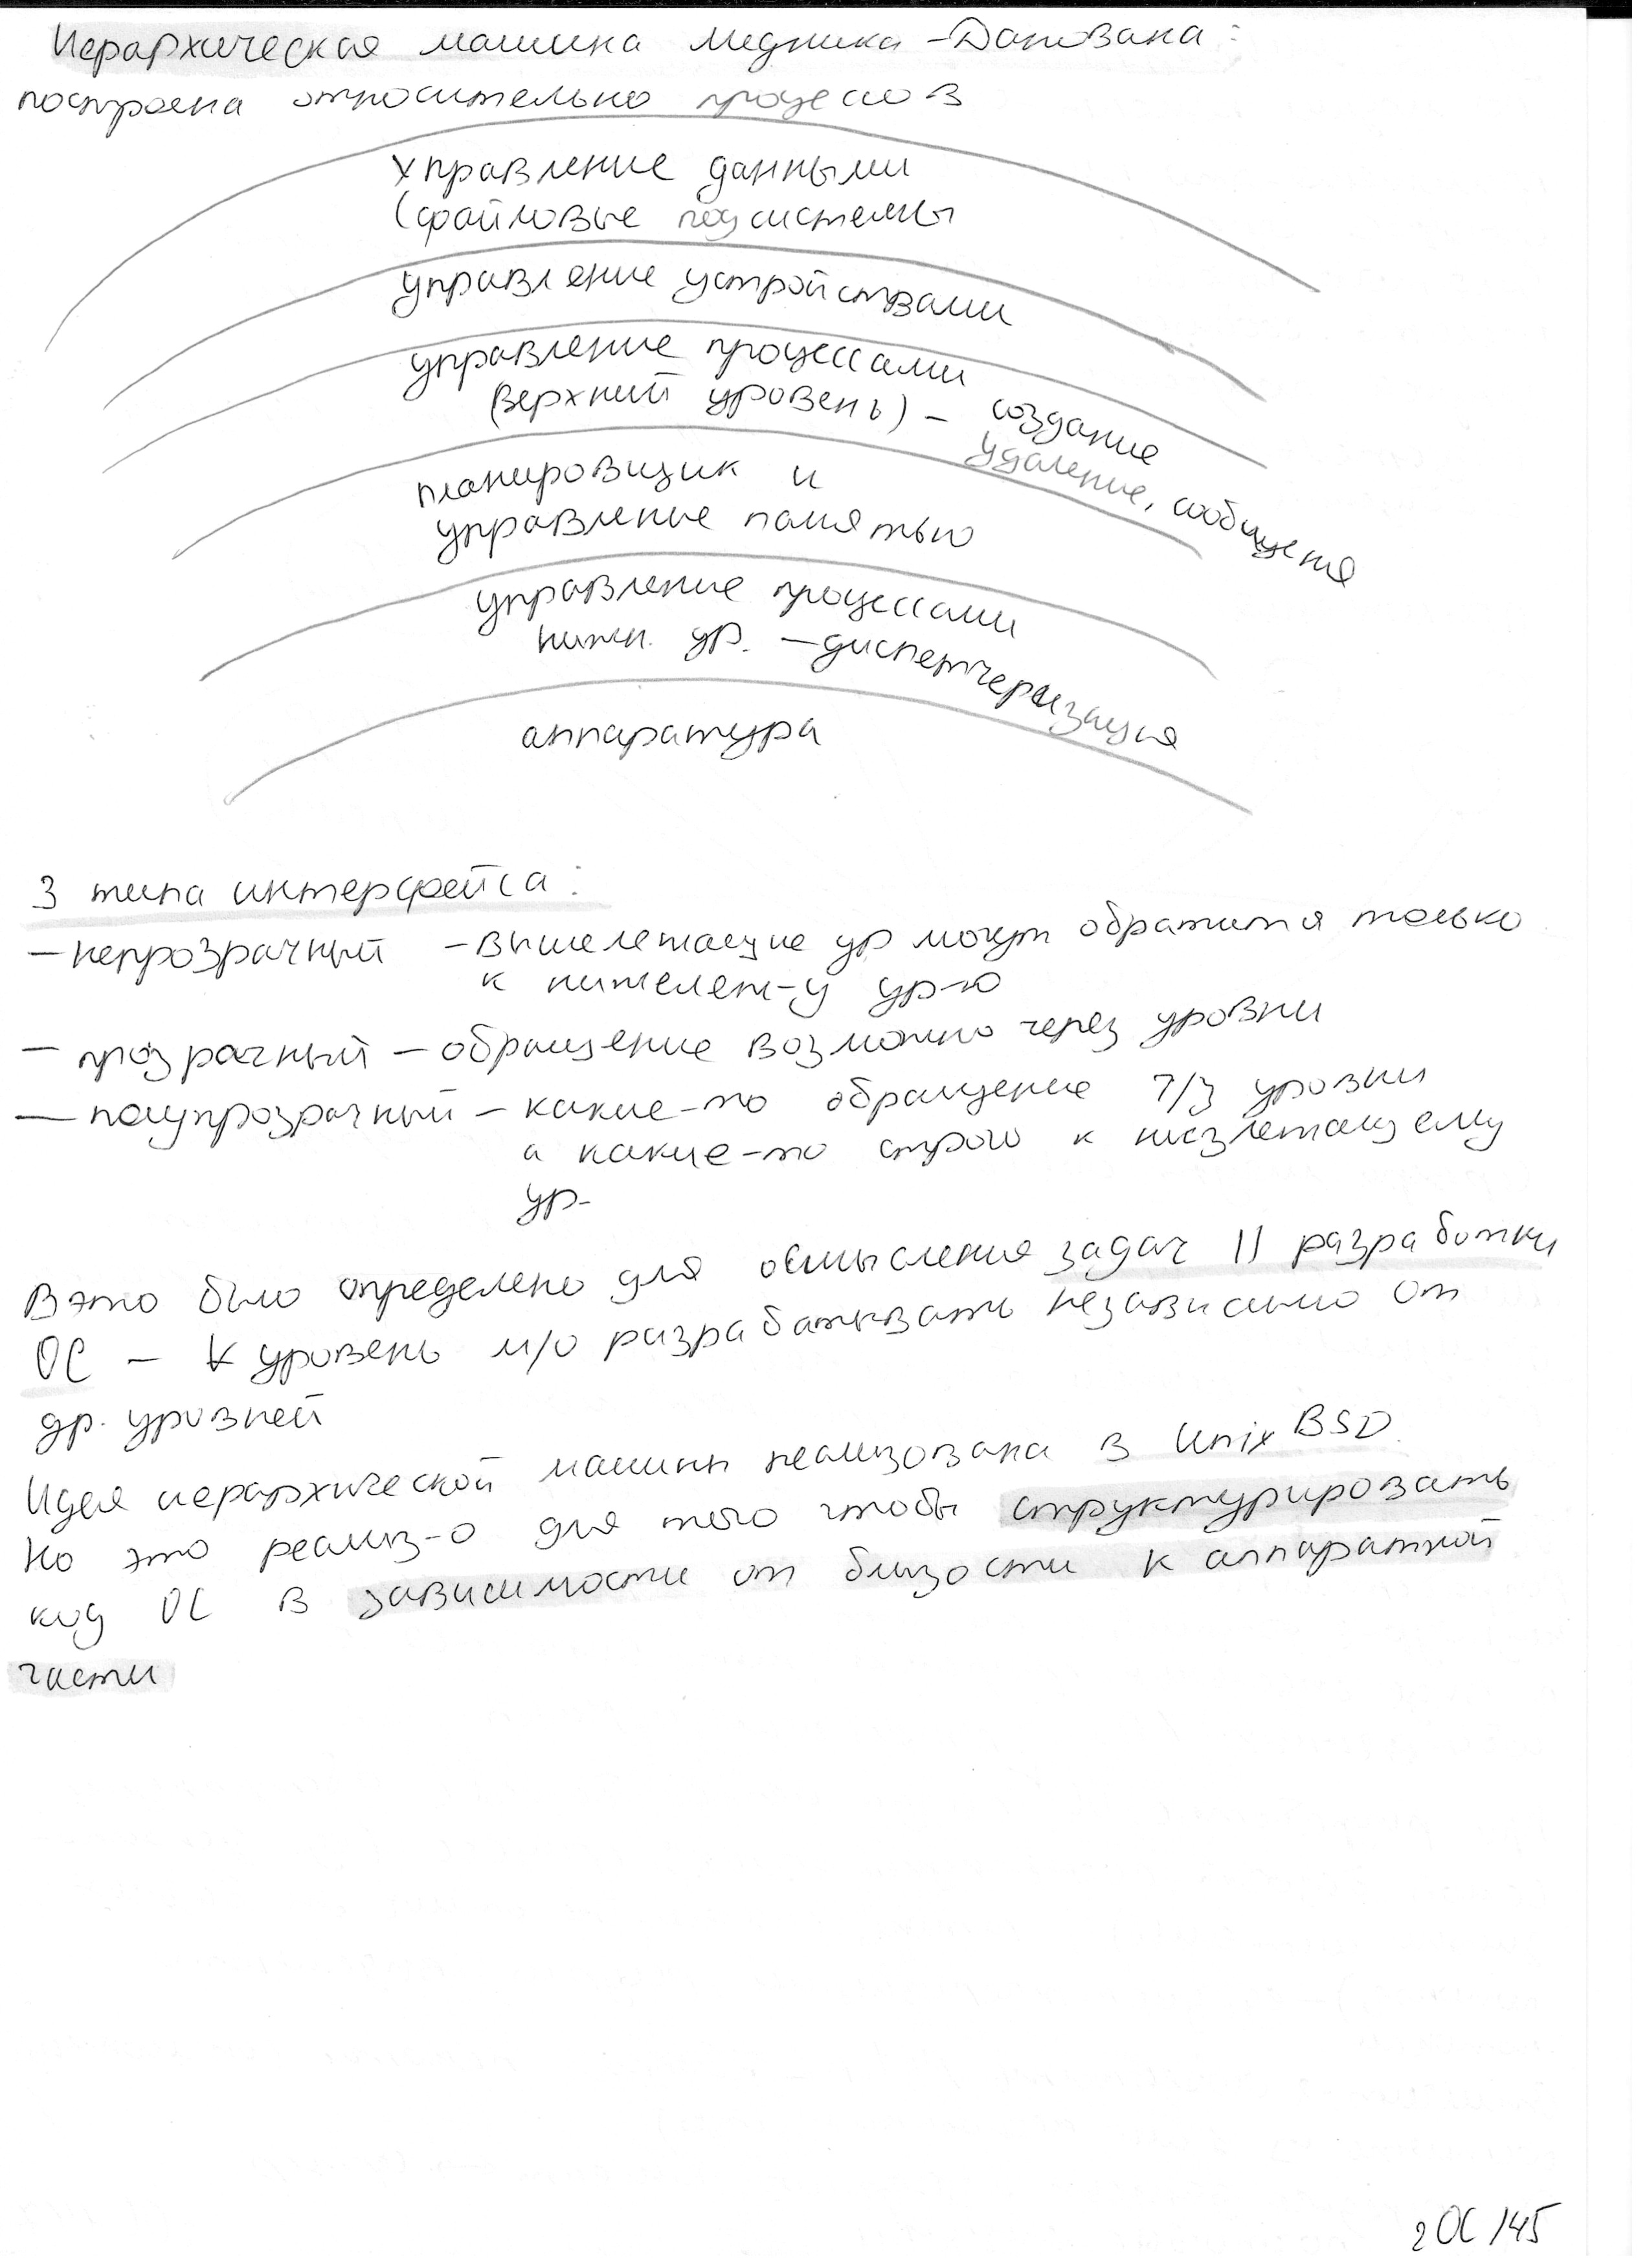 Иерархическая машина Медника-Донована:
построена относительно процессов
управление данными
(файловые подсистемы
управление устройствами
управление процессами
(верхний уровень) - создание
удаление, сообщения
планировщик и
управление памятью
управление процессами
нижн. ур. - диспетчеризация
аппаратура
3 типа интерфейса:
- непрозрачный - вышележащие ур могут обратится только
к нижележ-у ур-ю
- прозрачный - обращение возможно через уровни
- полупрозрачный - какие-то обращение ч/з уровни
а какие-то строго к низлежащему
ур-
Вэто было определено для осмысления задач || разработки
ОС - ∀ уровень м/о разрабатывать независимо от
др. уровней
Идея иерархической машины реализована в Unix BSD.
Но это реализ-о для того чтобы структурировать
код ОС в зависимости от близости к аппаратной
части
2 ОС /45